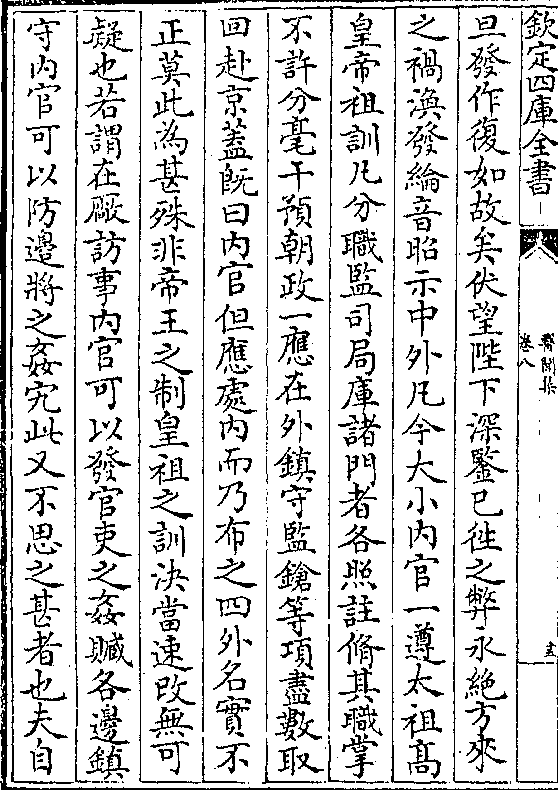 欽定四庫全書
醫閭集
卷八
旦發作復如故矣伏望陛下深鑒已徃之弊永絕方來
之禍渙發綸音昭示中外凡今大小内官一遵太祖髙
皇帝祖訓凡分職監司局庫諸門者各照註脩其職掌
不許分毫干預朝政一應在外鎮守監鎗等項盡數取
回赴京蓋既曰内官但應處内而乃布之四外名實不
正莫此為甚殊非帝王之制皇祖之訓決當速改無可
疑也若謂在厰訪事内官可以發官吏之姦贓各邊鎮
守内官可以防邊將之姦宄此又不思之甚者也夫自